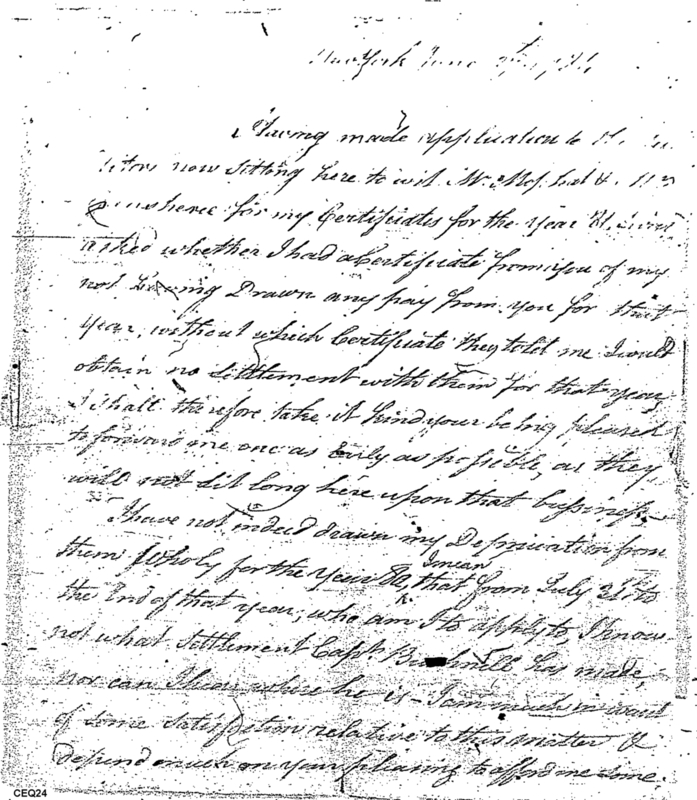 New York June
Having made application to
now sitting here to wit Mr.
for my Certificates for the year 81, I was
asked whether I had a Certificate from you of my
not having Drawn any pay from you for that
year, without which Certificate they told me I could
obtain no Settlement with them for that year,
I shall therefore take it kind your being pleased
to forward me one as Early as possible, as they
will not sit long here upon that bussiness.
I have not indeed drawn my Depriciation from
them Wholy for the year 80, I mean that from July 31st to
the End of that year; who am I to apply to, I know
not what Settlement Capt. Bushnell has made,
nor can I know where he is - I am much in want
of some satisfaction relative to this matter &
depend much on your pleasing to afford me some.
CEQ24